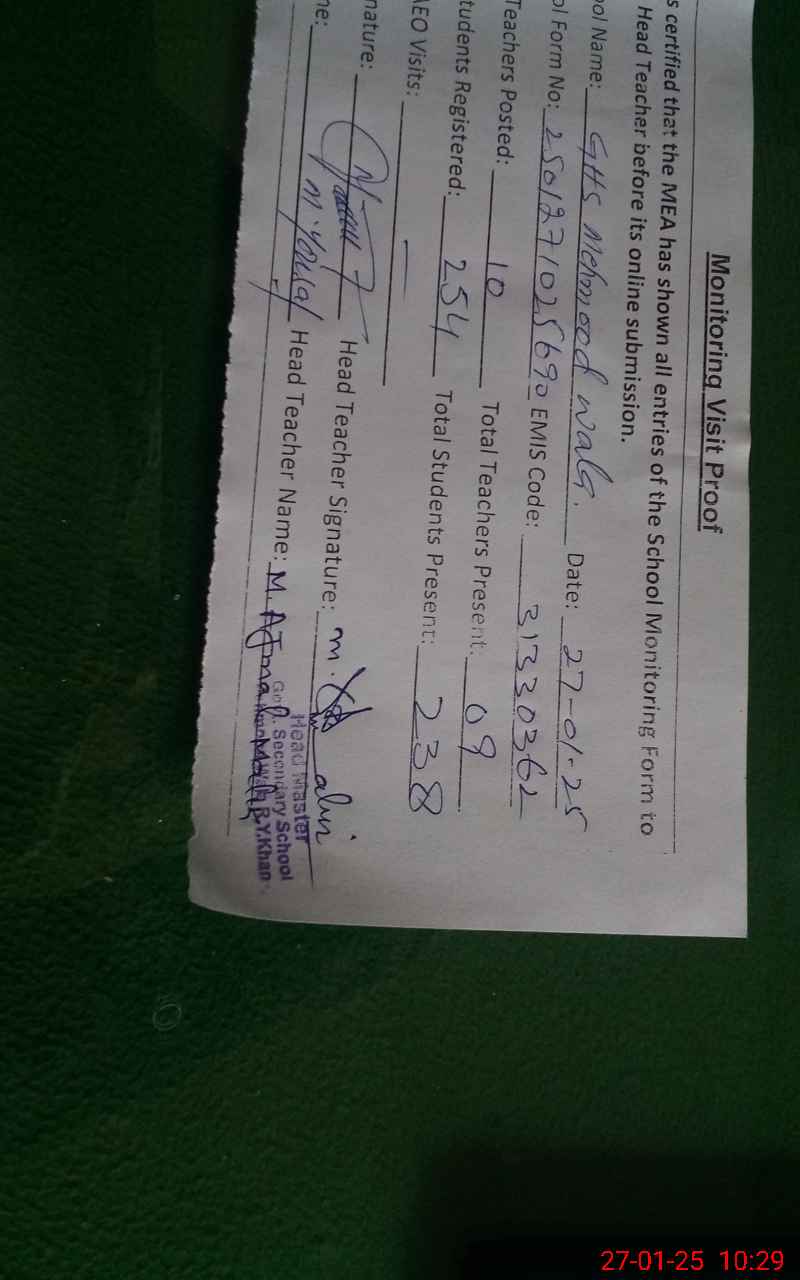 Monitoring Visit Proof
s certified that the MEA has shown all entries of the School Monitoring Form to
Head Teacher before its online submission.
ool Name: GHS Mehmood wala. Date: 27-01-25
ol Form No: 250127102569 0 EMIS Code: 31330362
Teachers Posted: 10 Total Teachers Present: 09
tudents Registered: 254 Total Students Present: 238
AEO Visits: —
nature: Head Teacher Signature:
ne: M. Yousaf Head Teacher Name: M. Ajmal
Head Master
Govt. Secondary School
R.Y.Khan
27-01-25 10:29